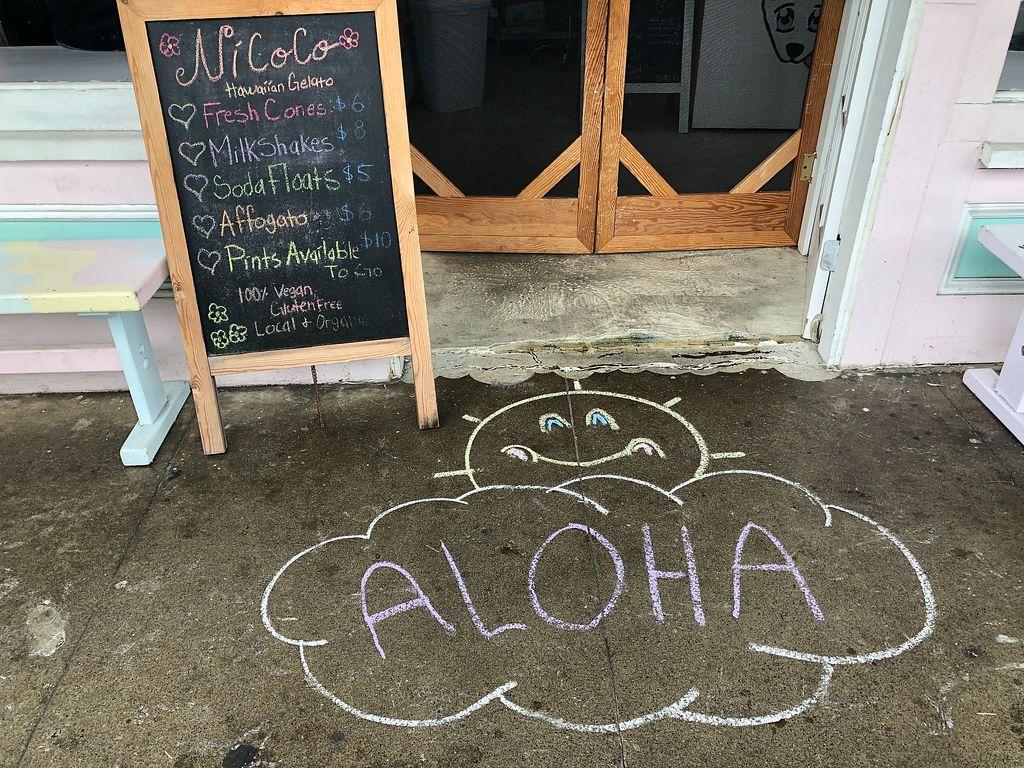 NiCoCo
Hawaiian Gelato
Fresh Cones $6
MilkShakes $8
Soda Floats $5
Affogato $6
Pints Available $10
To Go
100% Vegan,
Gluten Free
Local & Organic
ALOHA